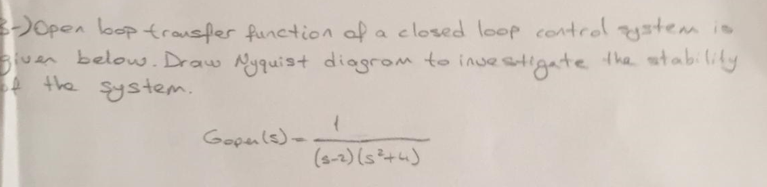 3-) Open loop transfer function of a closed loop control system is
given below. Draw Nyquist diagram to investigate the stability
of the system.
Gopen(s) = 1 / (s-2)(s²+4)